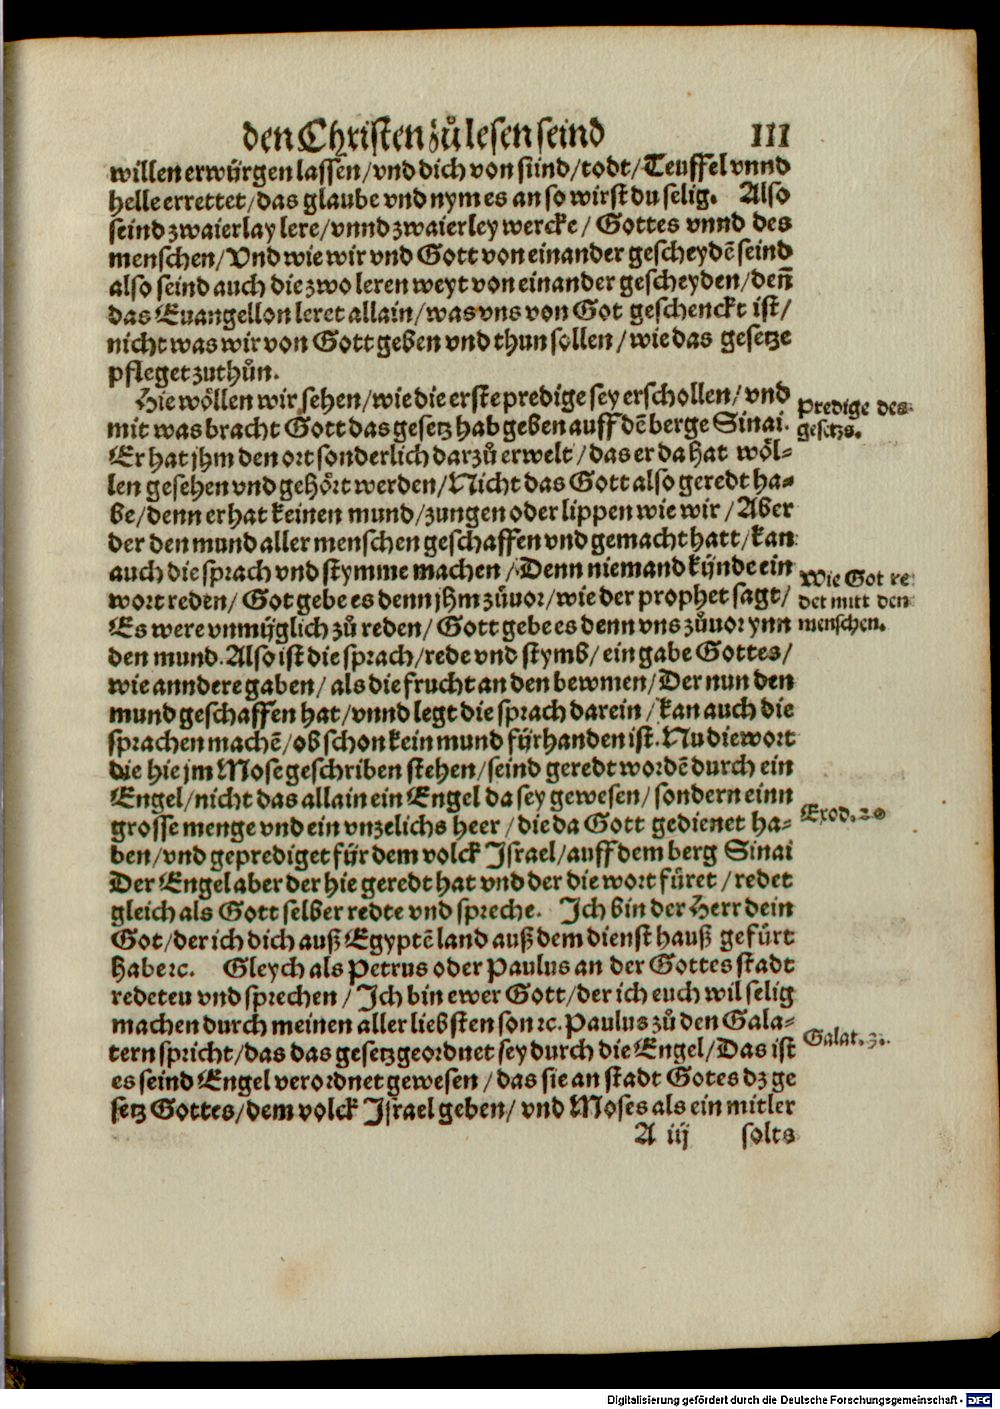 den Christen zů lesen seind III
willen erwürgen lassen/vnd dich von sünd/todt/Teuffel vnnd
helle errettet/das glaube vnd nym es an so wirst du selig. Also
seind zwaierlay lere/vnnd zwaierley wercke/ Gottes vnnd des
menschen/Vnd wie wir vnd Gott von einander gescheydē seind
also seind auch die zwo leren weyt von einander gescheyden/deñ
das Euangelion leret allain/was vns von Got geschenckt ist/
nicht was wir von Gott geben vnd thun sollen/wie das gesetze
pfleget zuthůn.
Hie wöllen wir sehen/wie die erste predige sey erschollen/vnd
mit was bracht Gott das gesetz hab geben auff dē berge Sinai.
Predige des
gesetzs.
Er hat jhm den ort sonderlich darzů erwelt/das er da hat wöl-
len gesehen vnd gehört werden/Nicht das Gott also geredt ha-
be/denn er hat keinen mund/zungen oder lippen wie wir/Aber
der den mund aller menschen geschaffen vnd gemacht hatt/kan
auch die sprach vnd stymme machen/Denn niemand kÿnde ein
wort reden/ Got gebe es denn jhm zůuor/wie der prophet sagt/
Es were vnmÿglich zů reden/ Gott gebe es denn vns zůuor ynn
Wie Got re
det mitt den
menschen.
den mund. Also ist die sprach/rede vnd stymb/ein gabe Gottes/
wie anndere gaben/ als die frucht an den bewmen/Der nun den
mund geschaffen hat/vnnd legt die sprach darein/kan auch die
sprachen machē/ob schon kein mund fÿrhanden ist. Nu die wort
die hie jm Mose geschriben stehen/seind geredt wordē durch ein
Engel/nicht das allain ein Engel da sey gewesen/sondern einn
grosse menge vnd ein vnzelichs heer/die da Gott gedienet ha-
Exod. 20
ben/vnd geprediget fÿr dem volck Israel/auff dem berg Sinai
Der Engel aber der hie geredt hat vnd der die wort füret/redet
gleich als Gott selber redte vnd spreche. Ich bin der Herr dein
Got/der ich dich auß Egyptē land auß dem dienst hauß gefürt
habe ꝛc. Gleych als Petrus oder Paulus an der Gottes stadt
redeteu vnd sprechen/Ich bin ewer Gott/der ich euch wil selig
machen durch meinen aller liebsten son ꝛc. Paulus zů den Gala-
tern spricht/das das gesetz geordnet sey durch die Engel/Das ist
Galat. 3.
es seind Engel verordnet gewesen/das sie an stadt Gotes dz ge
setz Gottes/dem volck Israel geben/ vnd Moses als ein mitler
A iij solts
Digitalisierung gefördert durch die Deutsche Forschungsgemeinschaft - DFG